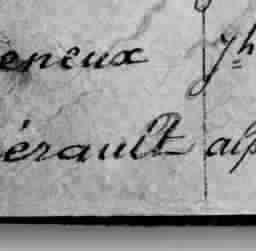 eneux Jh
érault alp